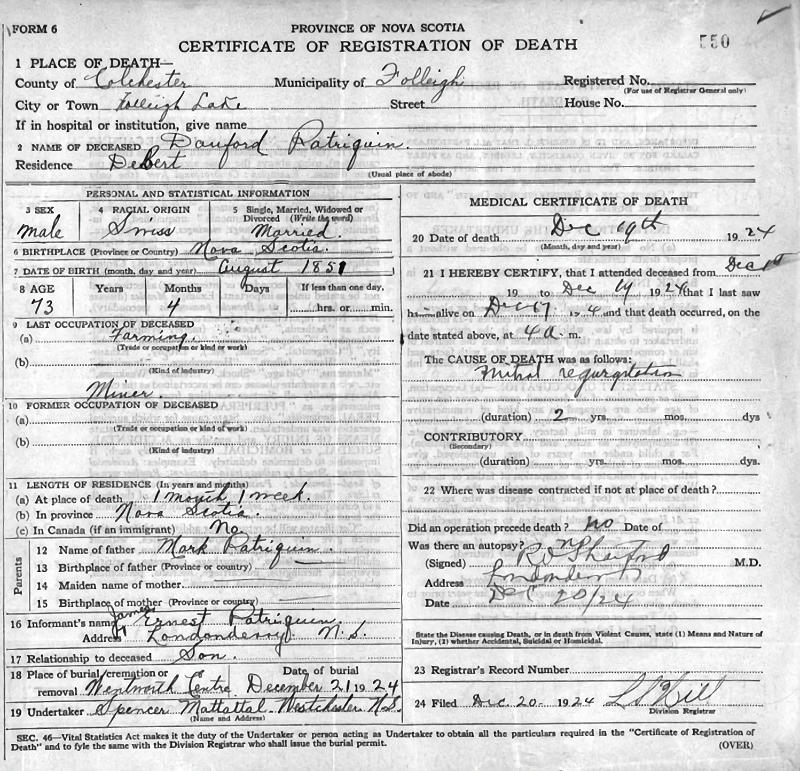 FORM 6
PROVINCE OF NOVA SCOTIA
CERTIFICATE OF REGISTRATION OF DEATH
550
1 PLACE OF DEATH—
County of Colchester Municipality of Folleigh Registered No.
(For use of Registrar General only)
City or Town Folleigh Lake Street House No.
If in hospital or institution, give name
2 NAME OF DECEASED Danford Patriquin.
Residence Debert
(Usual place of abode)
PERSONAL AND STATISTICAL INFORMATION
3 SEX 4 RACIAL ORIGIN 5 Single, Married, Widowed or Divorced (Write the word)
male Swiss Married.
6 BIRTHPLACE (Province or Country) Nova Scotia.
7 DATE OF BIRTH (month, day and year) August 1851
8 AGE Years Months Days If less than one day,
73 4 hrs. or min.
9 LAST OCCUPATION OF DECEASED
(a) Farming.
(Trade or occupation or kind of work)
(b)
(Kind of industry)
Miner.
10 FORMER OCCUPATION OF DECEASED
(a)
(Trade or occupation or kind of work)
(b)
(Kind of industry)
11 LENGTH OF RESIDENCE (In years and months)
(a) At place of death 1 month 1 week.
(b) In province Nova Scotia.
(c) In Canada (if an immigrant) No.
Parents
12 Name of father Mark Patriquin.
13 Birthplace of father (Province or country)
14 Maiden name of mother
15 Birthplace of mother (Province or country)
16 Informant's name James Ernest Patriquin
Address Londonderry N.S.
17 Relationship to deceased Son.
18 Place of burial, cremation or removal Wentworth Centre. Date of burial December 21 1924
19 Undertaker Spencer Mattattal Westchester N.S.
(Name and Address)
MEDICAL CERTIFICATE OF DEATH
20 Date of death Dec 19th 1924
(Month, day and year)
21 I HEREBY CERTIFY, that I attended deceased from Dec 1st
19 to Dec 19 1924 that I last saw
h alive on Dec 17 19 4 and that death occurred, on the
date stated above, at 4 a. m.
The CAUSE OF DEATH was as follows:
mitral regurgitation
(duration) 2 yrs. mos. dys
CONTRIBUTORY
(Secondary)
(duration) yrs. mos. dys.
22 Where was disease contracted if not at place of death?
Did an operation precede death? no Date of
Was there an autopsy? no
(Signed) M.D.
Address
Date Dec 20/24
State the Disease causing Death, or in death from Violent Causes, state (1) Means and Nature of
Injury, (2) whether Accidental, Suicidal or Homicidal.
23 Registrar's Record Number
24 Filed Dec 20 1924 Hill
Division Registrar
SEC. 46—Vital Statistics Act makes it the duty of the Undertaker or person acting as Undertaker to obtain all the particulars required in the "Certificate of Registration of
Death" and to fyle the same with the Division Registrar who shall issue the burial permit. (OVER)